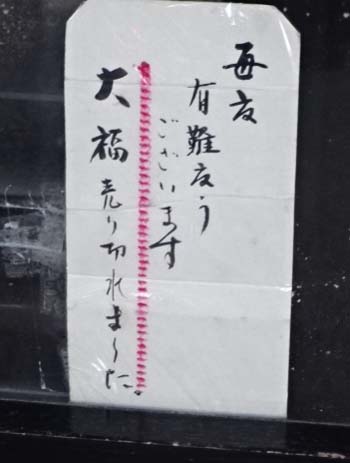 毎度
有難度う
ございます
大福売り切れました。